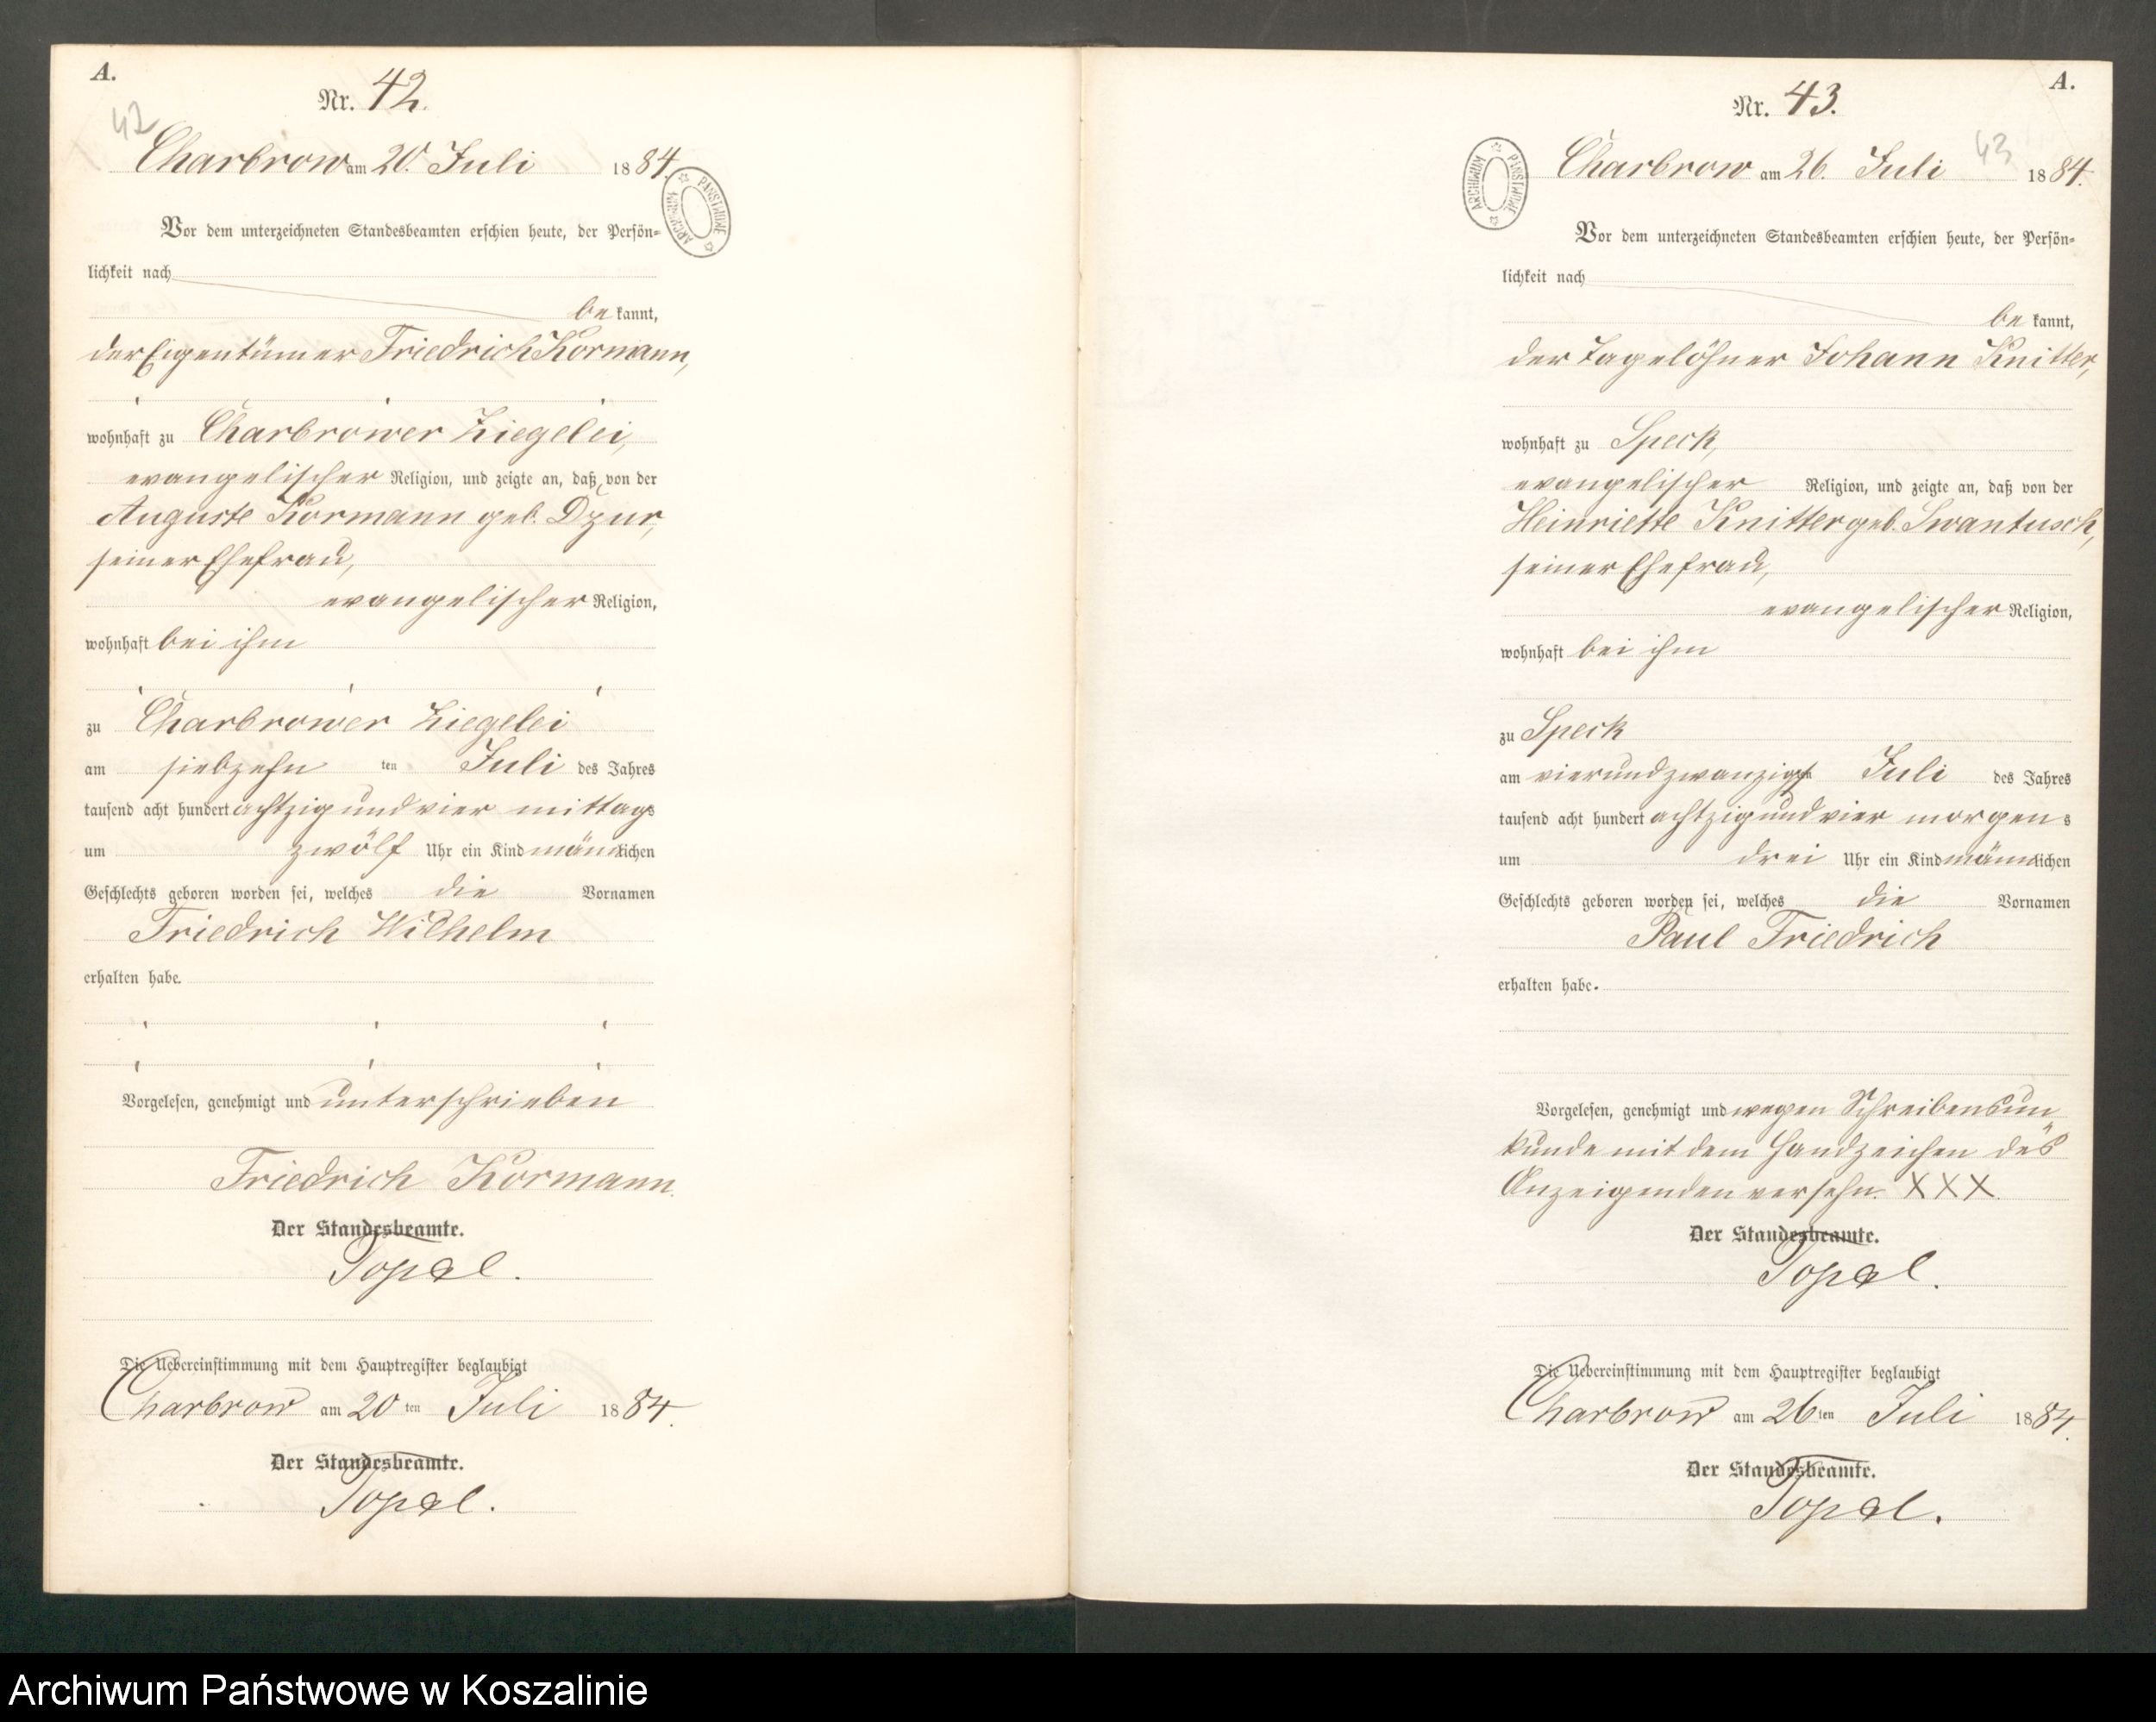 A.
Nr. 42.
42
Charbrow am 20. Juli 1884.
ARCHIWUM PAŃSTWOWE
Vor dem unterzeichneten Standesbeamten erschien heute, der Persön-
lichkeit nach
be kannt,
der Eigentümer Friedrich Kormann,
wohnhaft zu Charbrower Ziegelei,
evangelischer Religion, und zeigte an, daß von der
Auguste Kormann geb. Dzur,
seiner Ehefrau,
evangelischer Religion,
wohnhaft bei ihm
zu Charbrower Ziegelei
am siebzehn ten Juli des Jahres
tausend acht hundert achtzig und vier mittags
um zwölf Uhr ein Kind männlichen
Geschlechts geboren worden sei, welches die Vornamen
Friedrich Wilhelm
erhalten habe.
Vorgelesen, genehmigt und unterschrieben
Friedrich Kormann.
Der Standesbeamte.
Topel.
Die Uebereinstimmung mit dem Hauptregister beglaubigt
Charbrow am 20 ten Juli 1884.
Der Standesbeamte.
Topel.
A.
Nr. 43.
43
Charbrow am 26. Juli 1884.
ARCHIWUM PAŃSTWOWE
Vor dem unterzeichneten Standesbeamten erschien heute, der Persön-
lichkeit nach
be kannt,
der Tagelöhner Johann Knitter,
wohnhaft zu Speck,
evangelischer Religion, und zeigte an, daß von der
Heinriette Knitter geb. Swantusch,
seiner Ehefrau,
evangelischer Religion,
wohnhaft bei ihm
zu Speck
am vierundzwanzigsten Juli des Jahres
tausend acht hundert achtzig und vier morgens
um drei Uhr ein Kind männlichen
Geschlechts geboren worden sei, welches die Vornamen
Paul Friedrich
erhalten habe.
Vorgelesen, genehmigt und wegen Schreibensun
kunde mit dem Handzeichen des
Anzeigenden versehn. XXX.
Der Standesbeamte.
Topel.
Die Uebereinstimmung mit dem Hauptregister beglaubigt
Charbrow am 26 ten Juli 1884.
Der Standesbeamte.
Topel.
Archiwum Państwowe w Koszalinie